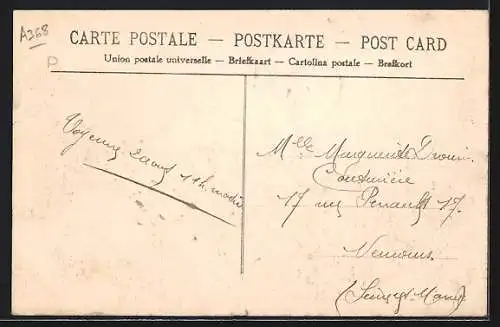 A368
CARTE POSTALE — POSTKARTE — POST CARD
Union postale universelle — Briefkaart — Cartolina postale — Brefkort
P
11 h matin
Mlle Marguerite Drouin
Couturière
17 rue Perrault 17.
(Seine et Marne)